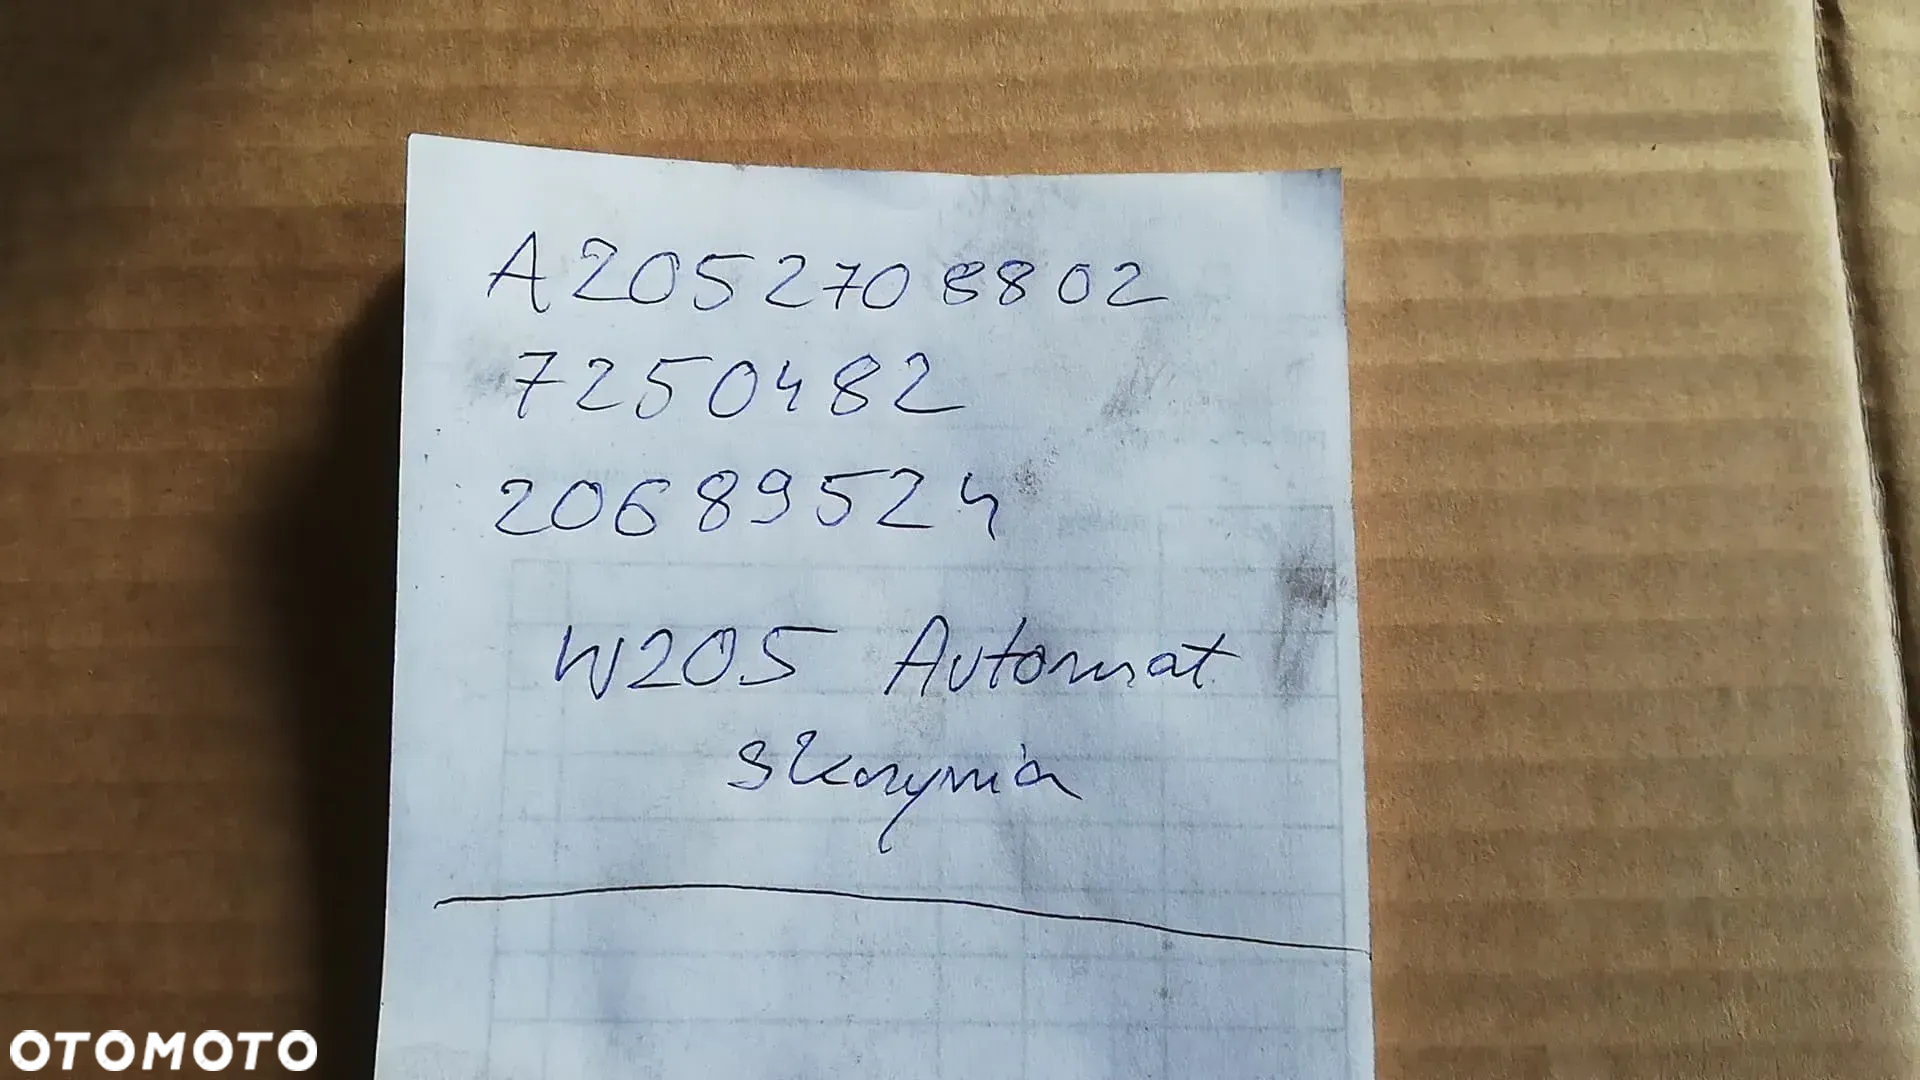 A2052708802
7250482
20689524
W205 Automat
skrzynia
OTOMOTO